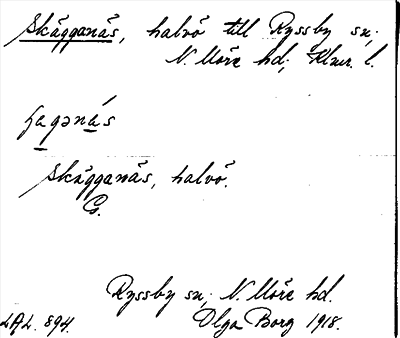 Skägganäs, halvö till Ryssby sn;
N. Möre hd; Klmr. l.
Skägganäs, halvö.
G.
Ryssby sn; N. Möre hd.
LAL. 894. Olga Borg 1918.